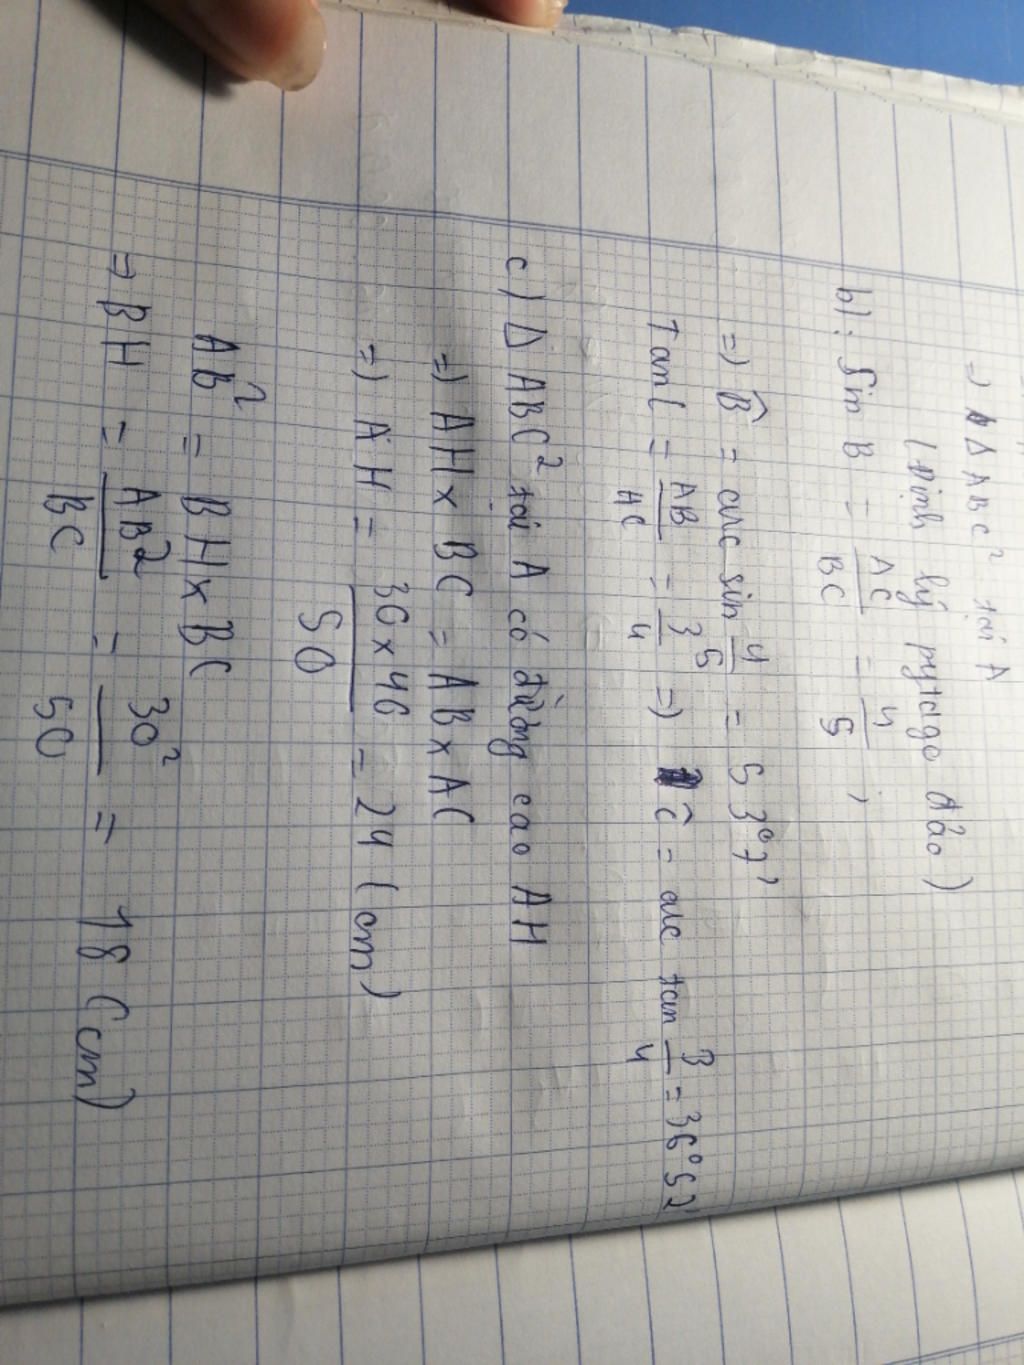 =) Δ ABC² tại A
(Định lý pytago đảo)
b): Sin B = AC/BC = 4/5 ,
=) B̂ = arc sin 4/5 = 53°7'
Tan C = AB/AC = 3/4 =) Ĉ = arc tan 3/4 = 36°52'
c) Δ ABC² tại A có đường cao AH
=) AH x BC = AB x AC
=) AH = 30 x 40 / 50 = 24 (cm)
AB² = BH x BC
=> BH = AB²/BC = 30²/50 = 18 (cm)